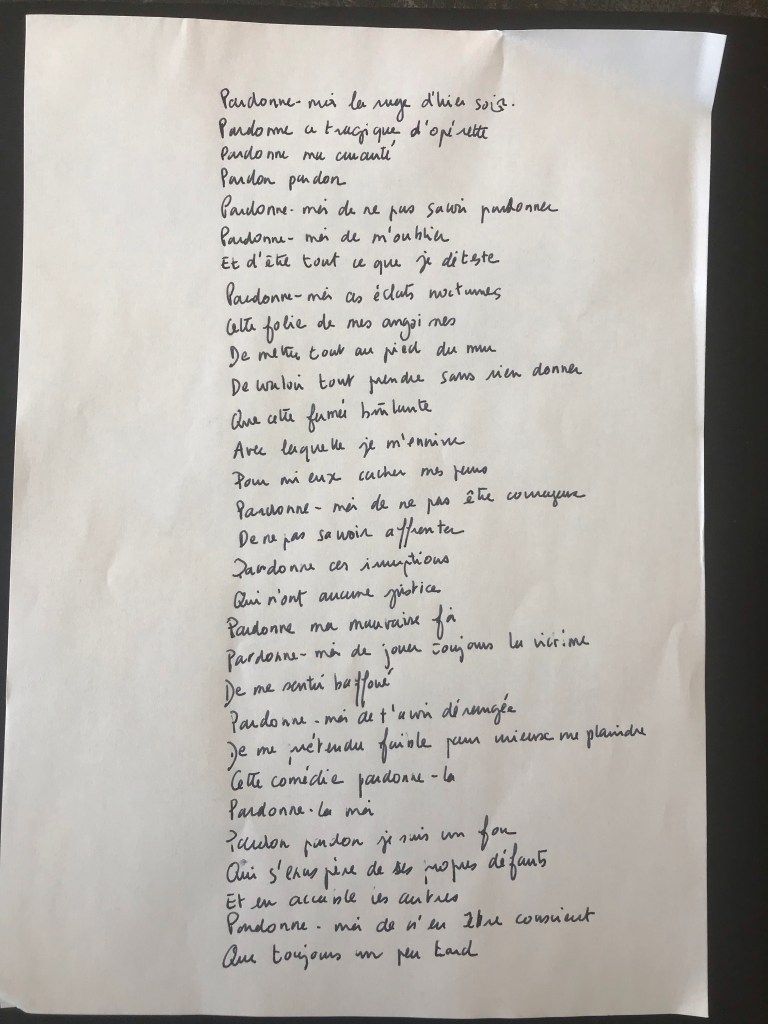 Pardonne-moi la rage d'hier soir.
Pardonne ce tragique d'opérette
Pardonne ma cruauté
Pardon pardon
Pardonne-moi de ne pas savoir pardonner
Pardonne-moi de m'oublier
Et d'être tout ce que je déteste
Pardonne-moi ces éclats nocturnes
Cette folie de mes angoisses
De mettre tout au pied du mur
De vouloir tout prendre sans rien donner
Que cette fumée brûlante
Avec laquelle je m'ennivre
Pour mieux cacher mes peurs
Pardonne-moi de ne pas être courageux
De ne pas savoir affronter
Pardonne ces irruptions
Qui n'ont aucune justice
Pardonne ma mauvaise foi
Pardonne-moi de jouer toujours la victime
De me sentir baffoué
Pardonne-moi de t'avoir dérangée
De me prétendre faible pour mieux me plaindre
Cette comédie pardonne-la
Pardonne-la moi
Pardon pardon je suis un fou
Qui s'exaspère de ses propres défauts
Et en accable les autres
Pardonne-moi de n'en être conscient
Que toujours un peu tard